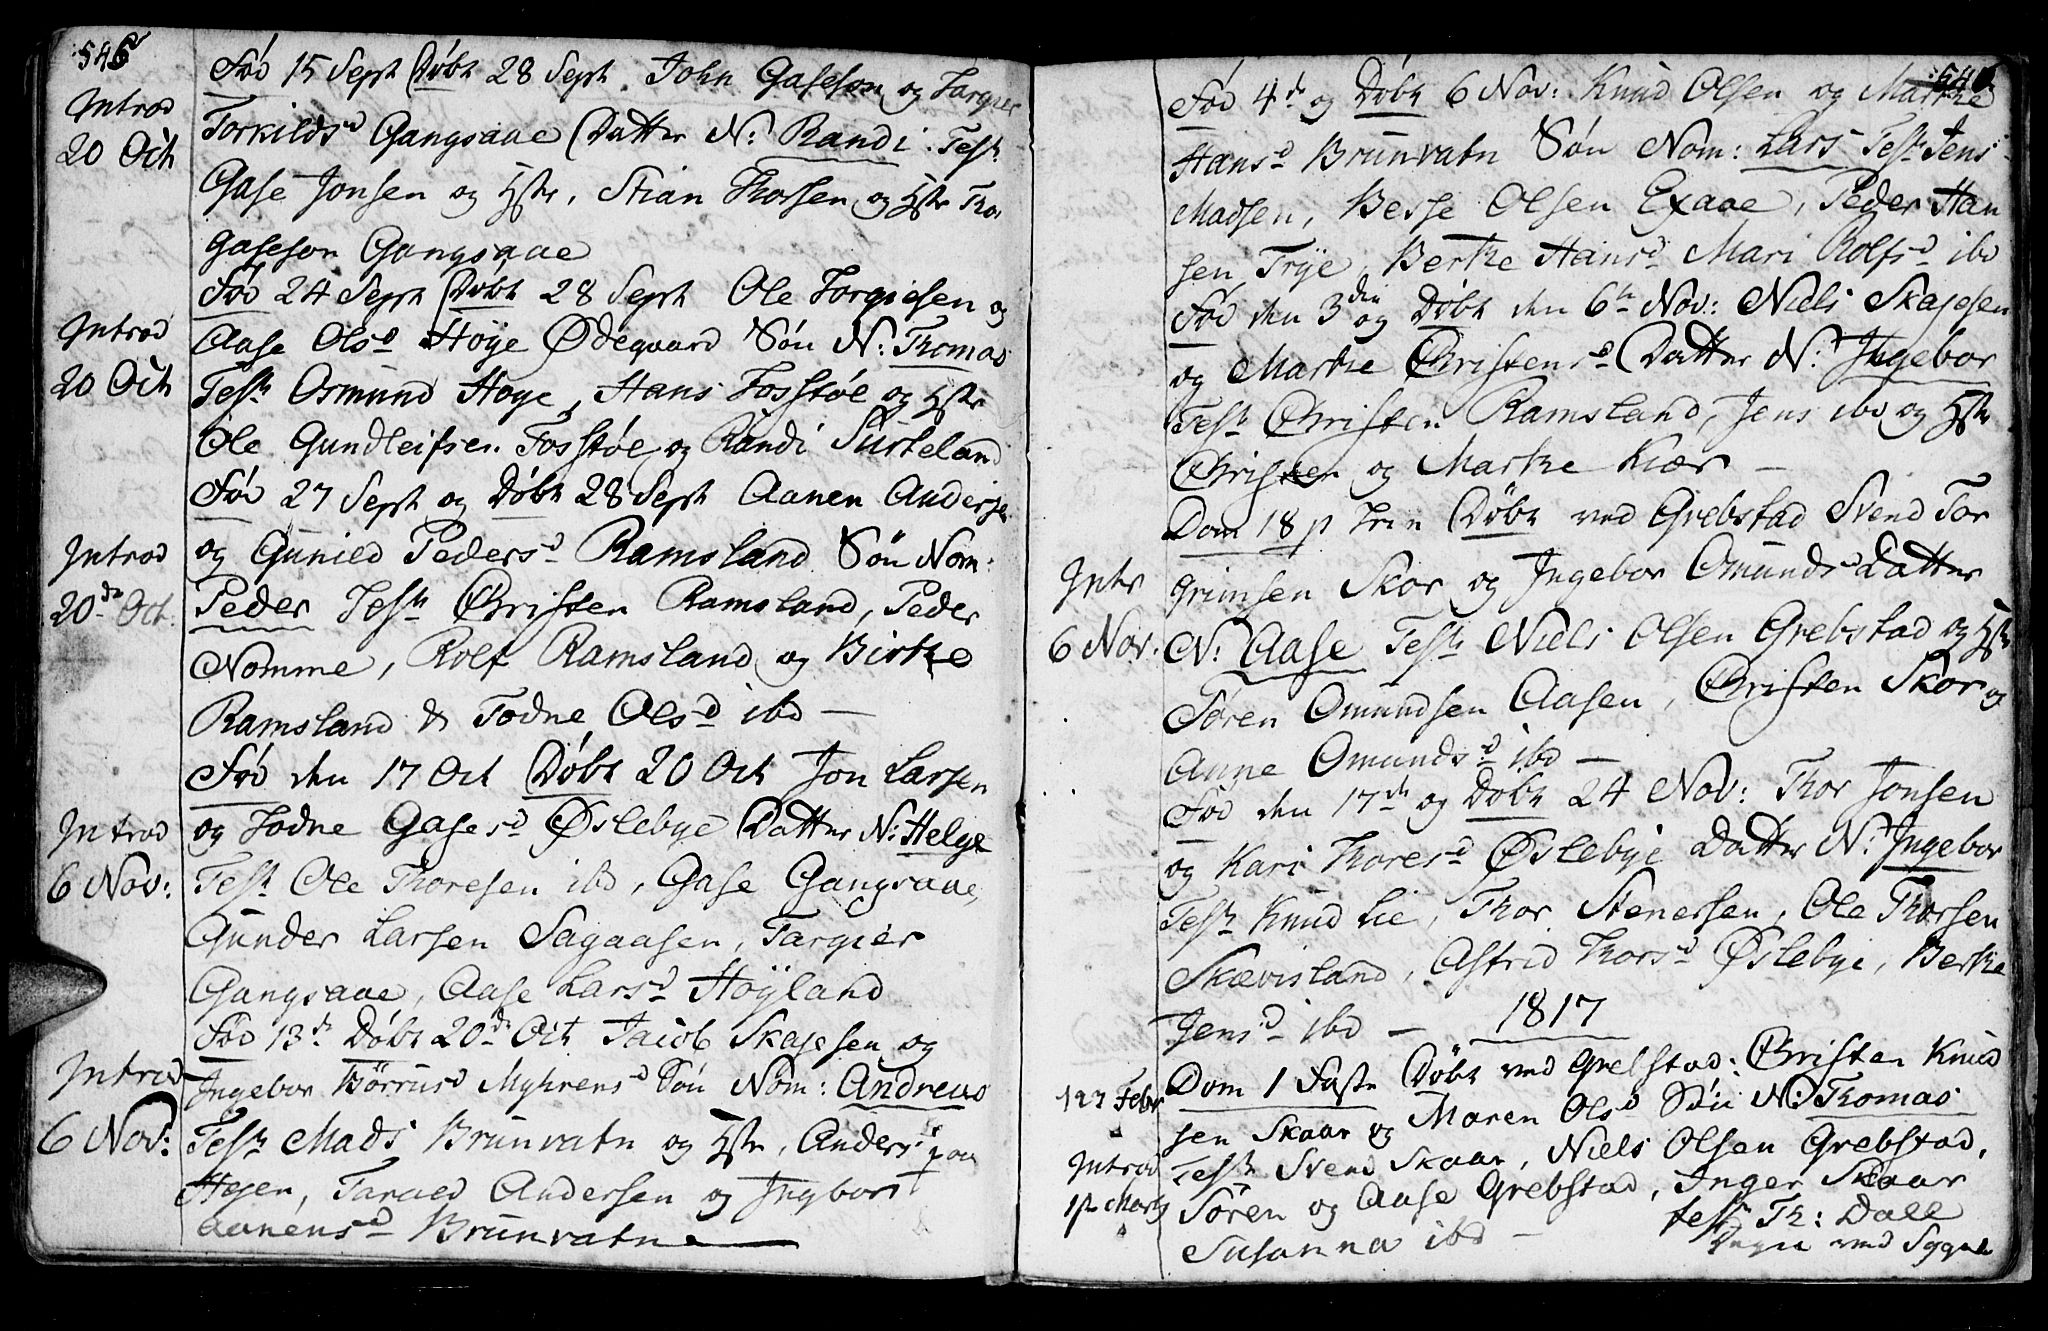 546
Introd
20 Oct
Fød 15 Sept Døbt 28 Sept. John Gaseson og Targier
Torkilds d Gangsaae Datter N: Randi. Test.
Gase Jonsen og Hstr, Stian Thorsen og Hstr Tho
Gaseson Gangsaae
Introd
20 Oct
Fød 24 Sept Døbt 28 Sept Ole Torgiesen og
Aase Ols d Høye Ødegaard Søn N: Thomas
Test Osmund Høye, Hans Fosstøl og Hstr
Ole Gundleifsen Fosstøl og Randi Surteland
Introd
20 de Oct.
Fød 27 Sept og Døbt 28 Sept Aanen Andersen
og Gunild Peders d Ramsland Søn Nom:
Peder Test Christen Ramsland, Peder
Nomme, Rolf Ramsland og Birthe
Ramsland & Todne Ols d ibd —
Fød den 17 Oct Døbt 20 Oct Jon Larsen
Introd
6 Nov:
og Todne Gases d Øslebye Datter N: Helge
Test Ole Thoresen ibd, Gase Gangsaae,
Gunder Larsen Sagaasen, Targier
Gangsaae, Aase Lars d Høyland
Introd
6 Nov:
Fød 13 de Døbt 20 de Oct Jacob Skajesen og
Ingebor Børrus d Myhrens d Søn Nom: Andreas
Test Mads Brunvatn og Hstr, Anders paa
Hejen, Taraed Andersen og Ingbor
Aanens d Brunvatn —
Fød 4 de og Døbt 6 Nov: Knud Olsen og Marthe
Hans d Brunvatn Søn Nom: Lars Test Jens
Madsen, Besse Olsen Exaae, Peder Han
sen Trye, Berthe Hans d Mari Rolfs d ibd
Fød den 3 den og Døbt den 6 te Nov: Niels Skajesen
og Marthe Christens d Datter N: Ingebor
Test Christen Ramsland, Jens ibd og Hstr
Christen og Marthe Kiær —
Dom 18 p Trin Døbt ved Grebstad Svend Tor
Intr
6 Nov.
grimsen Skor og Ingebor Omunds Datter
N: Aase Test Niels Olsen Grebstad og Hstr
Søren Omundsen Aasen, Christen Skor og
Anne Omunds d ibd —
Fød den 17 de og Døbt 24 Nov: Thor Jonsen
og Kari Thores d Øslebye Datter N: Ingebor
Test Knud Lie, Thor Stenersen, Ole Thorsen
Skævisland, Astrid Thors d Øslebye, Berthe
Jens d ibd —
1817
Febr
Introd
Marts
Dom 1 Faste Døbt ved Grebstad: Christen Knud
sen Skaar og Maren Ols d Søn N: Thomas
Test Svend Skaar, Niels Olsen Grebstad,
Søren og Aase Grebstad, Inger Skaar
Susanna ibd —
test Th: Dall
Degn ved Sygne